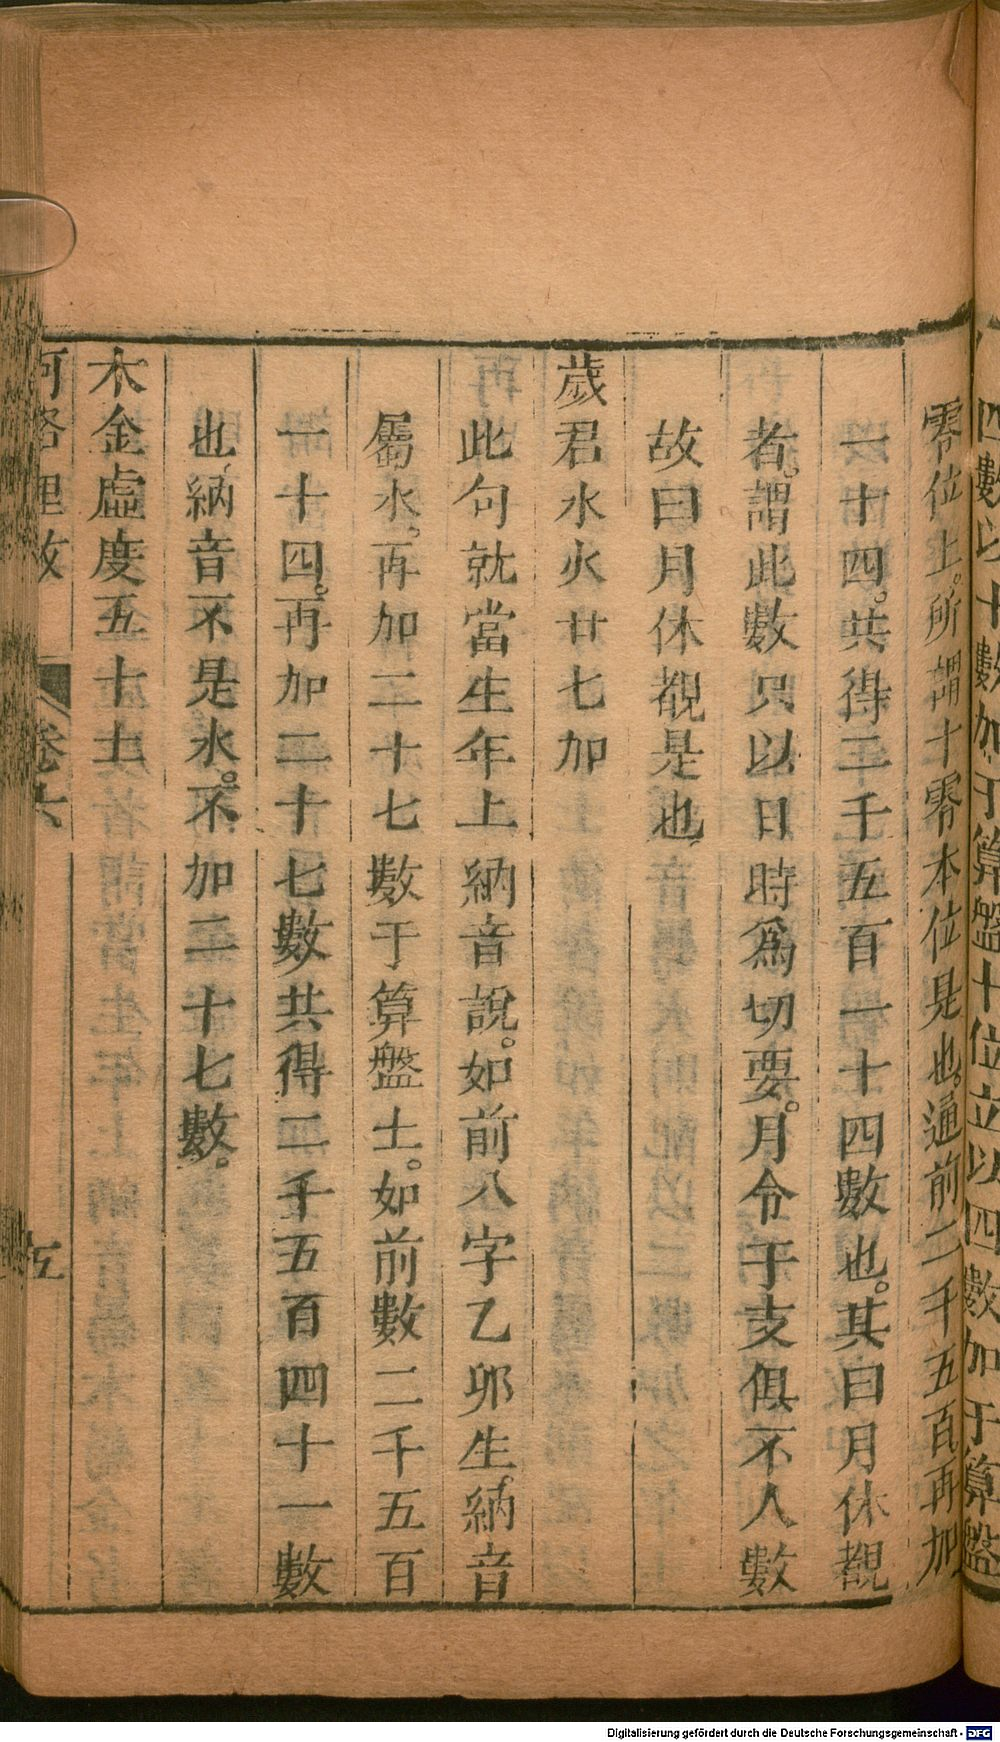 四數以十數加于算盤十位立以四數加于算盤
零位上。所謂十零本位是也。通前二千五百再加
一十四。共得二千五百一十四數也。其曰月休覩
者。謂此數只以日時爲切要。月令于支俱不人數
故曰月休覩是也
歲君水火廿七加
此句就當生年上納音說。如前八字乙卯生。納音
屬水。再加二十七數于算盤士。如前數二千五百
一十四。再加二十七數共得二千五百四十一數
也納音不是水。不加二十七數。
木金虛度五十士
河洛理數 卷六 五
Digitalisierung gefördert durch die Deutsche Forschungsgemeinschaft - DFG